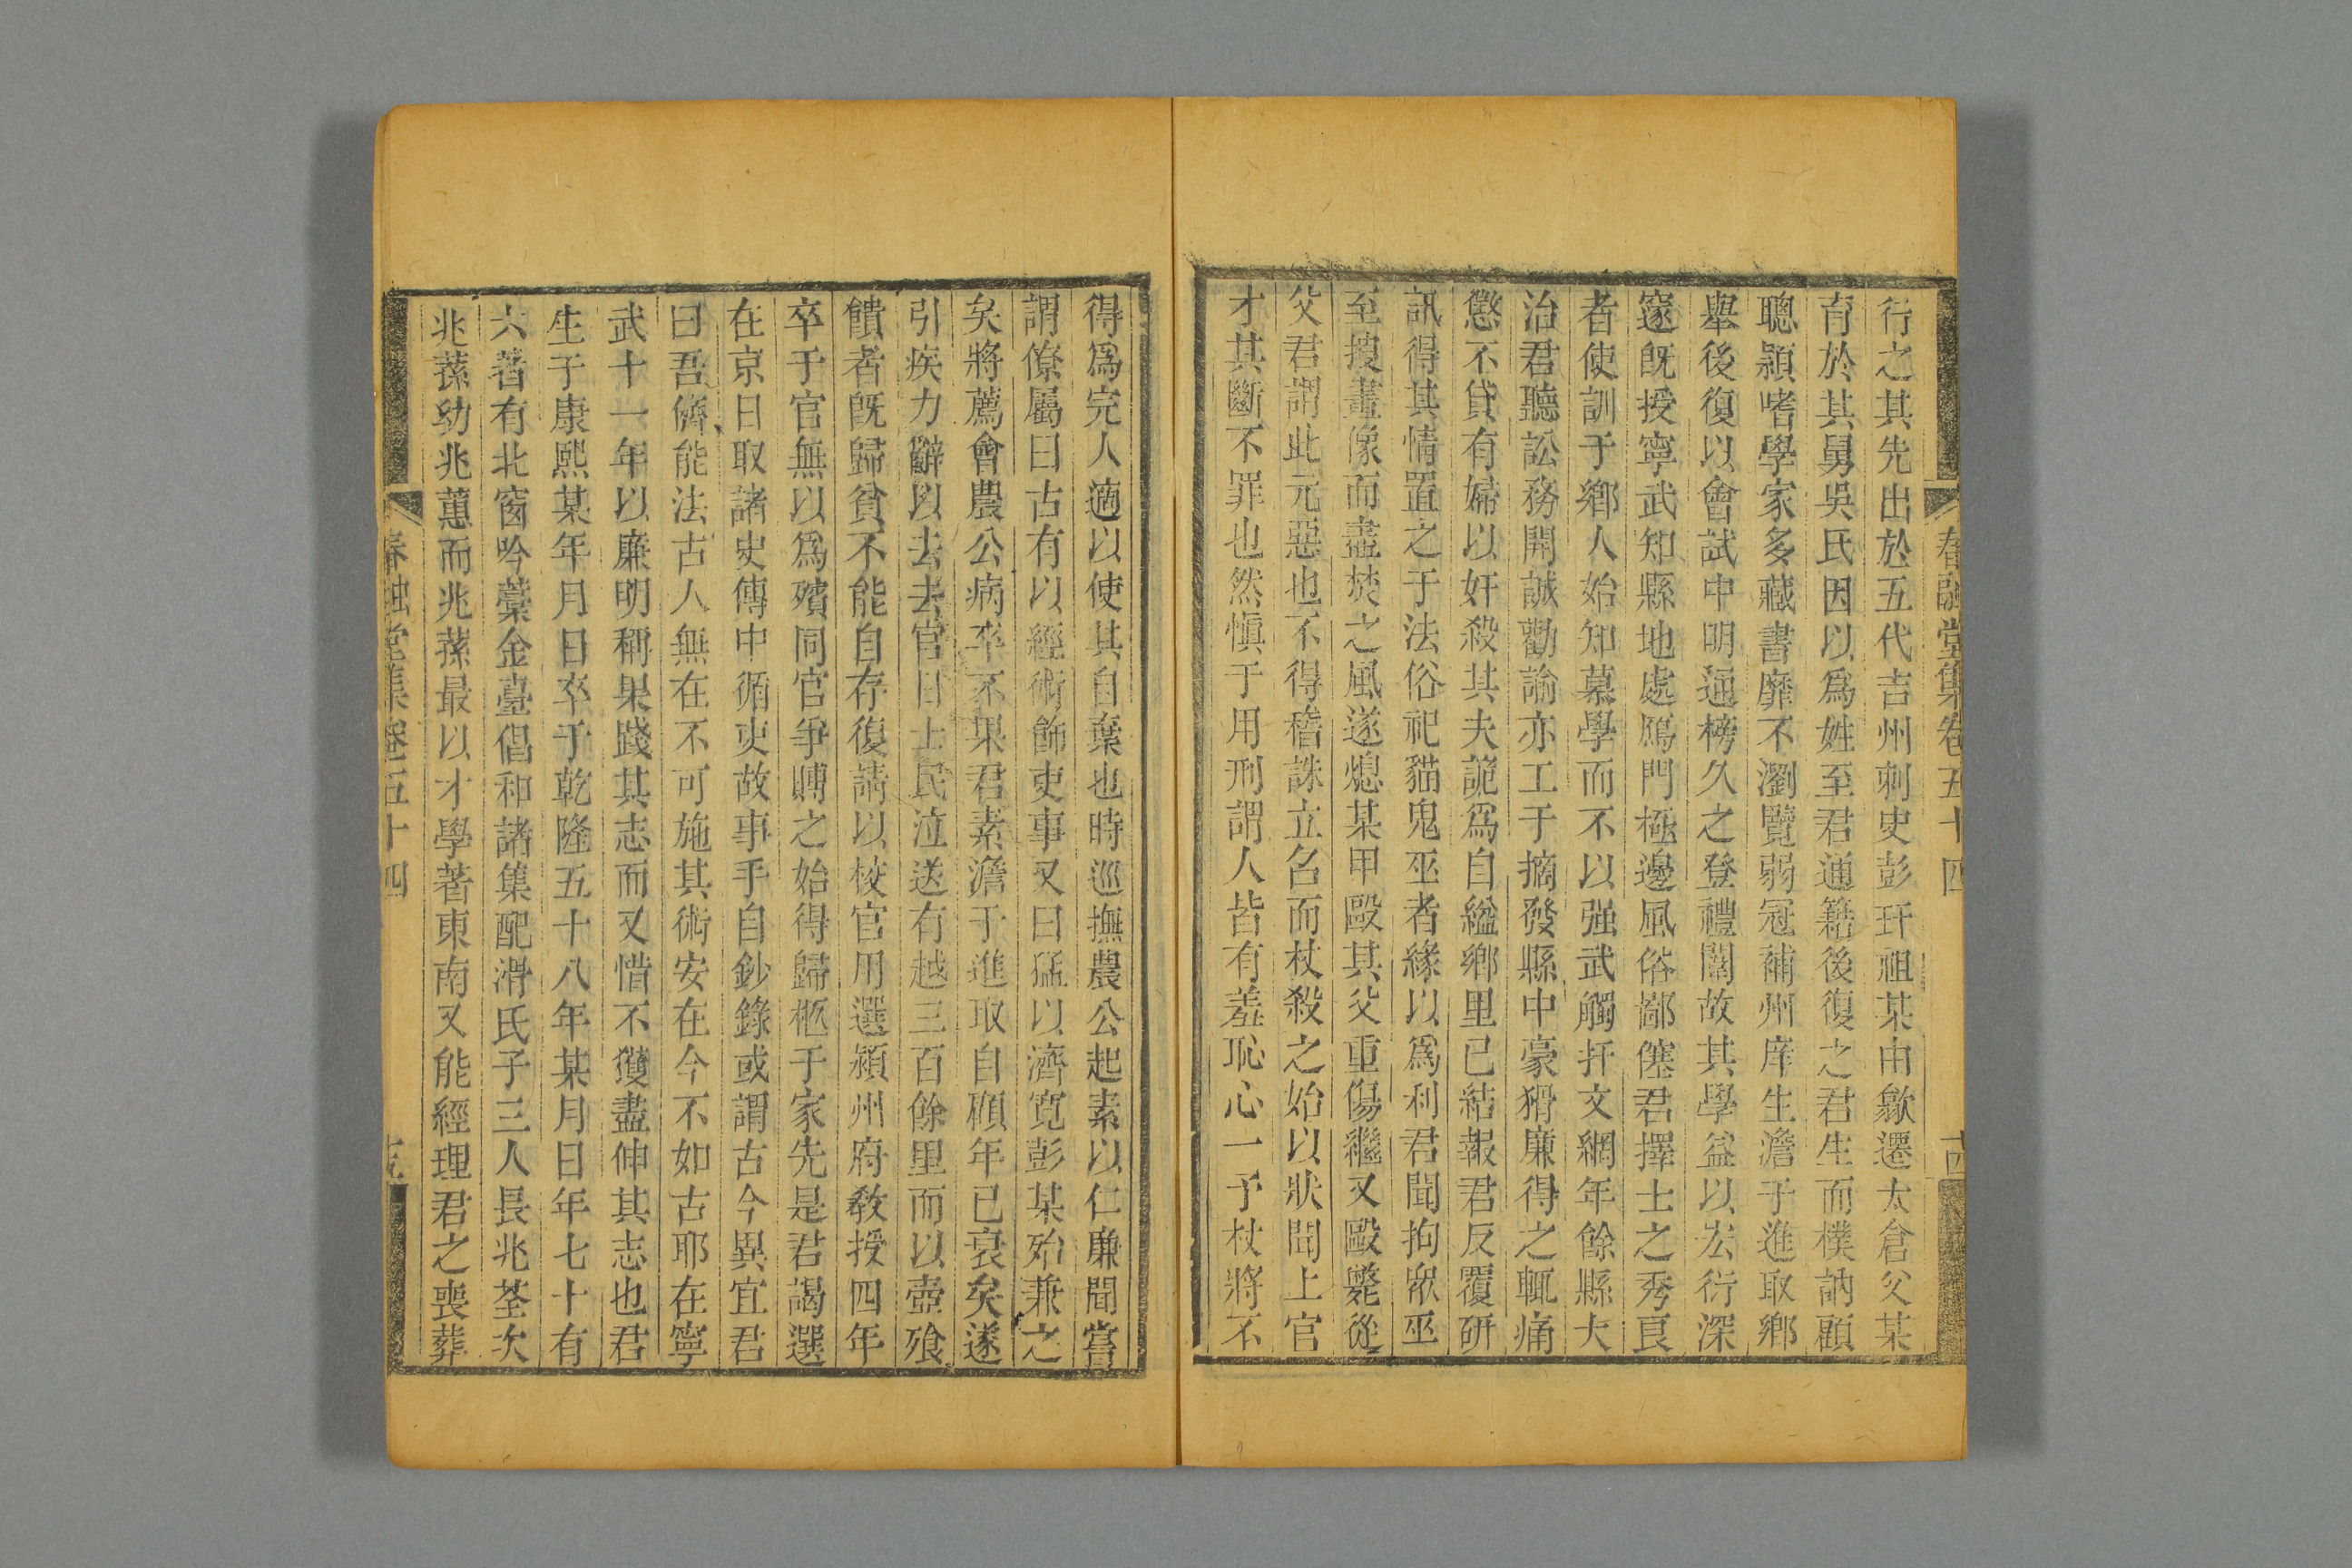 行之其先出於五代吉州刺史彭玕祖某由歙遷太倉父某
育於其舅吳氏因以爲姓至君通籍後復之君生而樸訥顧
聰穎嗜學家多藏書靡不瀏覽弱冠補州庠生澹于進取鄉
舉後復以會試中明通榜久之登禮闈故其學益以宏衍深
邃旣授寧武知縣地處鴈門極邊風俗鄙僿君擇士之秀良
者使訓于鄕人始知慕學而不以强武觸扞文網年餘縣大
治君聽訟務開誠勸諭亦工于摘發縣中豪猾廉得之輒痛
懲不貸有婦以奸殺其夫詭爲自縊鄕里已結報君反覆硏
訊得其情置之于法俗祀貓鬼巫者緣以爲利君聞拘衆巫
至搜畫像而盡焚之風遂熄某甲毆其父重傷繼又毆斃從
父君謂此元惡也不得稽誅立名而杖殺之始以狀聞上官
才其斷不罪也然愼于用刑謂人皆有羞恥心一予杖將不
春融堂集卷五十四
十四
得爲完人適以使其自棄也時巡撫農公起素以仁廉聞嘗
謂僚屬曰古有以經術飾吏事又曰猛以濟寬彭某殆兼之
矣將薦會農公病卒不果君素澹于進取自顧年已衰矣遂
引疾力辭以去去官日士民泣送有越三百餘里而以壺飱
饋者旣歸貧不能自存復請以校官用選潁州府敎授四年
卒于官無以爲殯同官爭賻之始得歸柩于家先是君謁選
在京日取諸史傳中循吏故事手自鈔錄或謂古今異宜君
曰吾儕能法古人無在不可施其術安在今不如古耶在寧
武十一年以廉明稱果踐其志而又惜不獲盡伸其志也君
生于康熙某年月日卒于乾隆五十八年某月日年七十有
六著有北窗吟藁金臺倡和諸集配滑氏子三人長兆荃次
兆蓀幼兆蕙而兆蓀最以才學著東南又能經理君之喪葬
春融堂集卷五十四